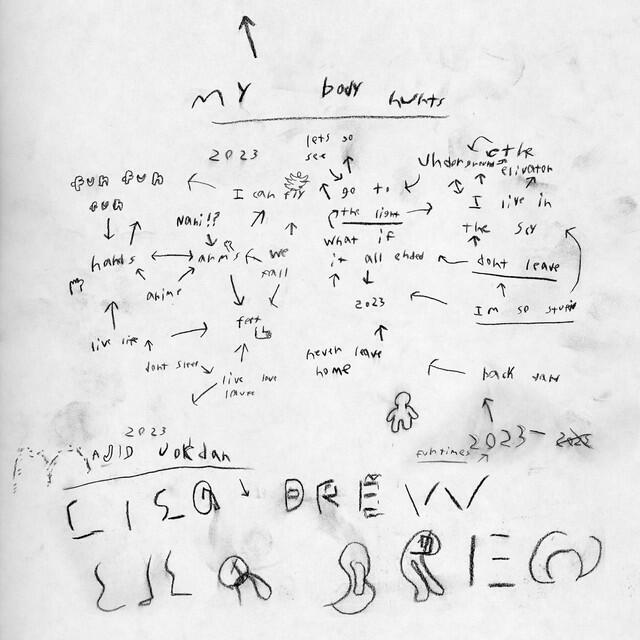 MY body hurhts
lets go
see
2023
the
underground
elivator
fun fun
fun
I can fly
go to
I live in
the light
Nani!?
the sky
what if
hands
arms
we
fall
it all ended
dont leave
anime
2023
I'm so stupid
live life
feet
never leave
home
dont sleep
live love
leave
back yard
2023
2023 -
MAJID JORDAN
fun times
LISA BREW